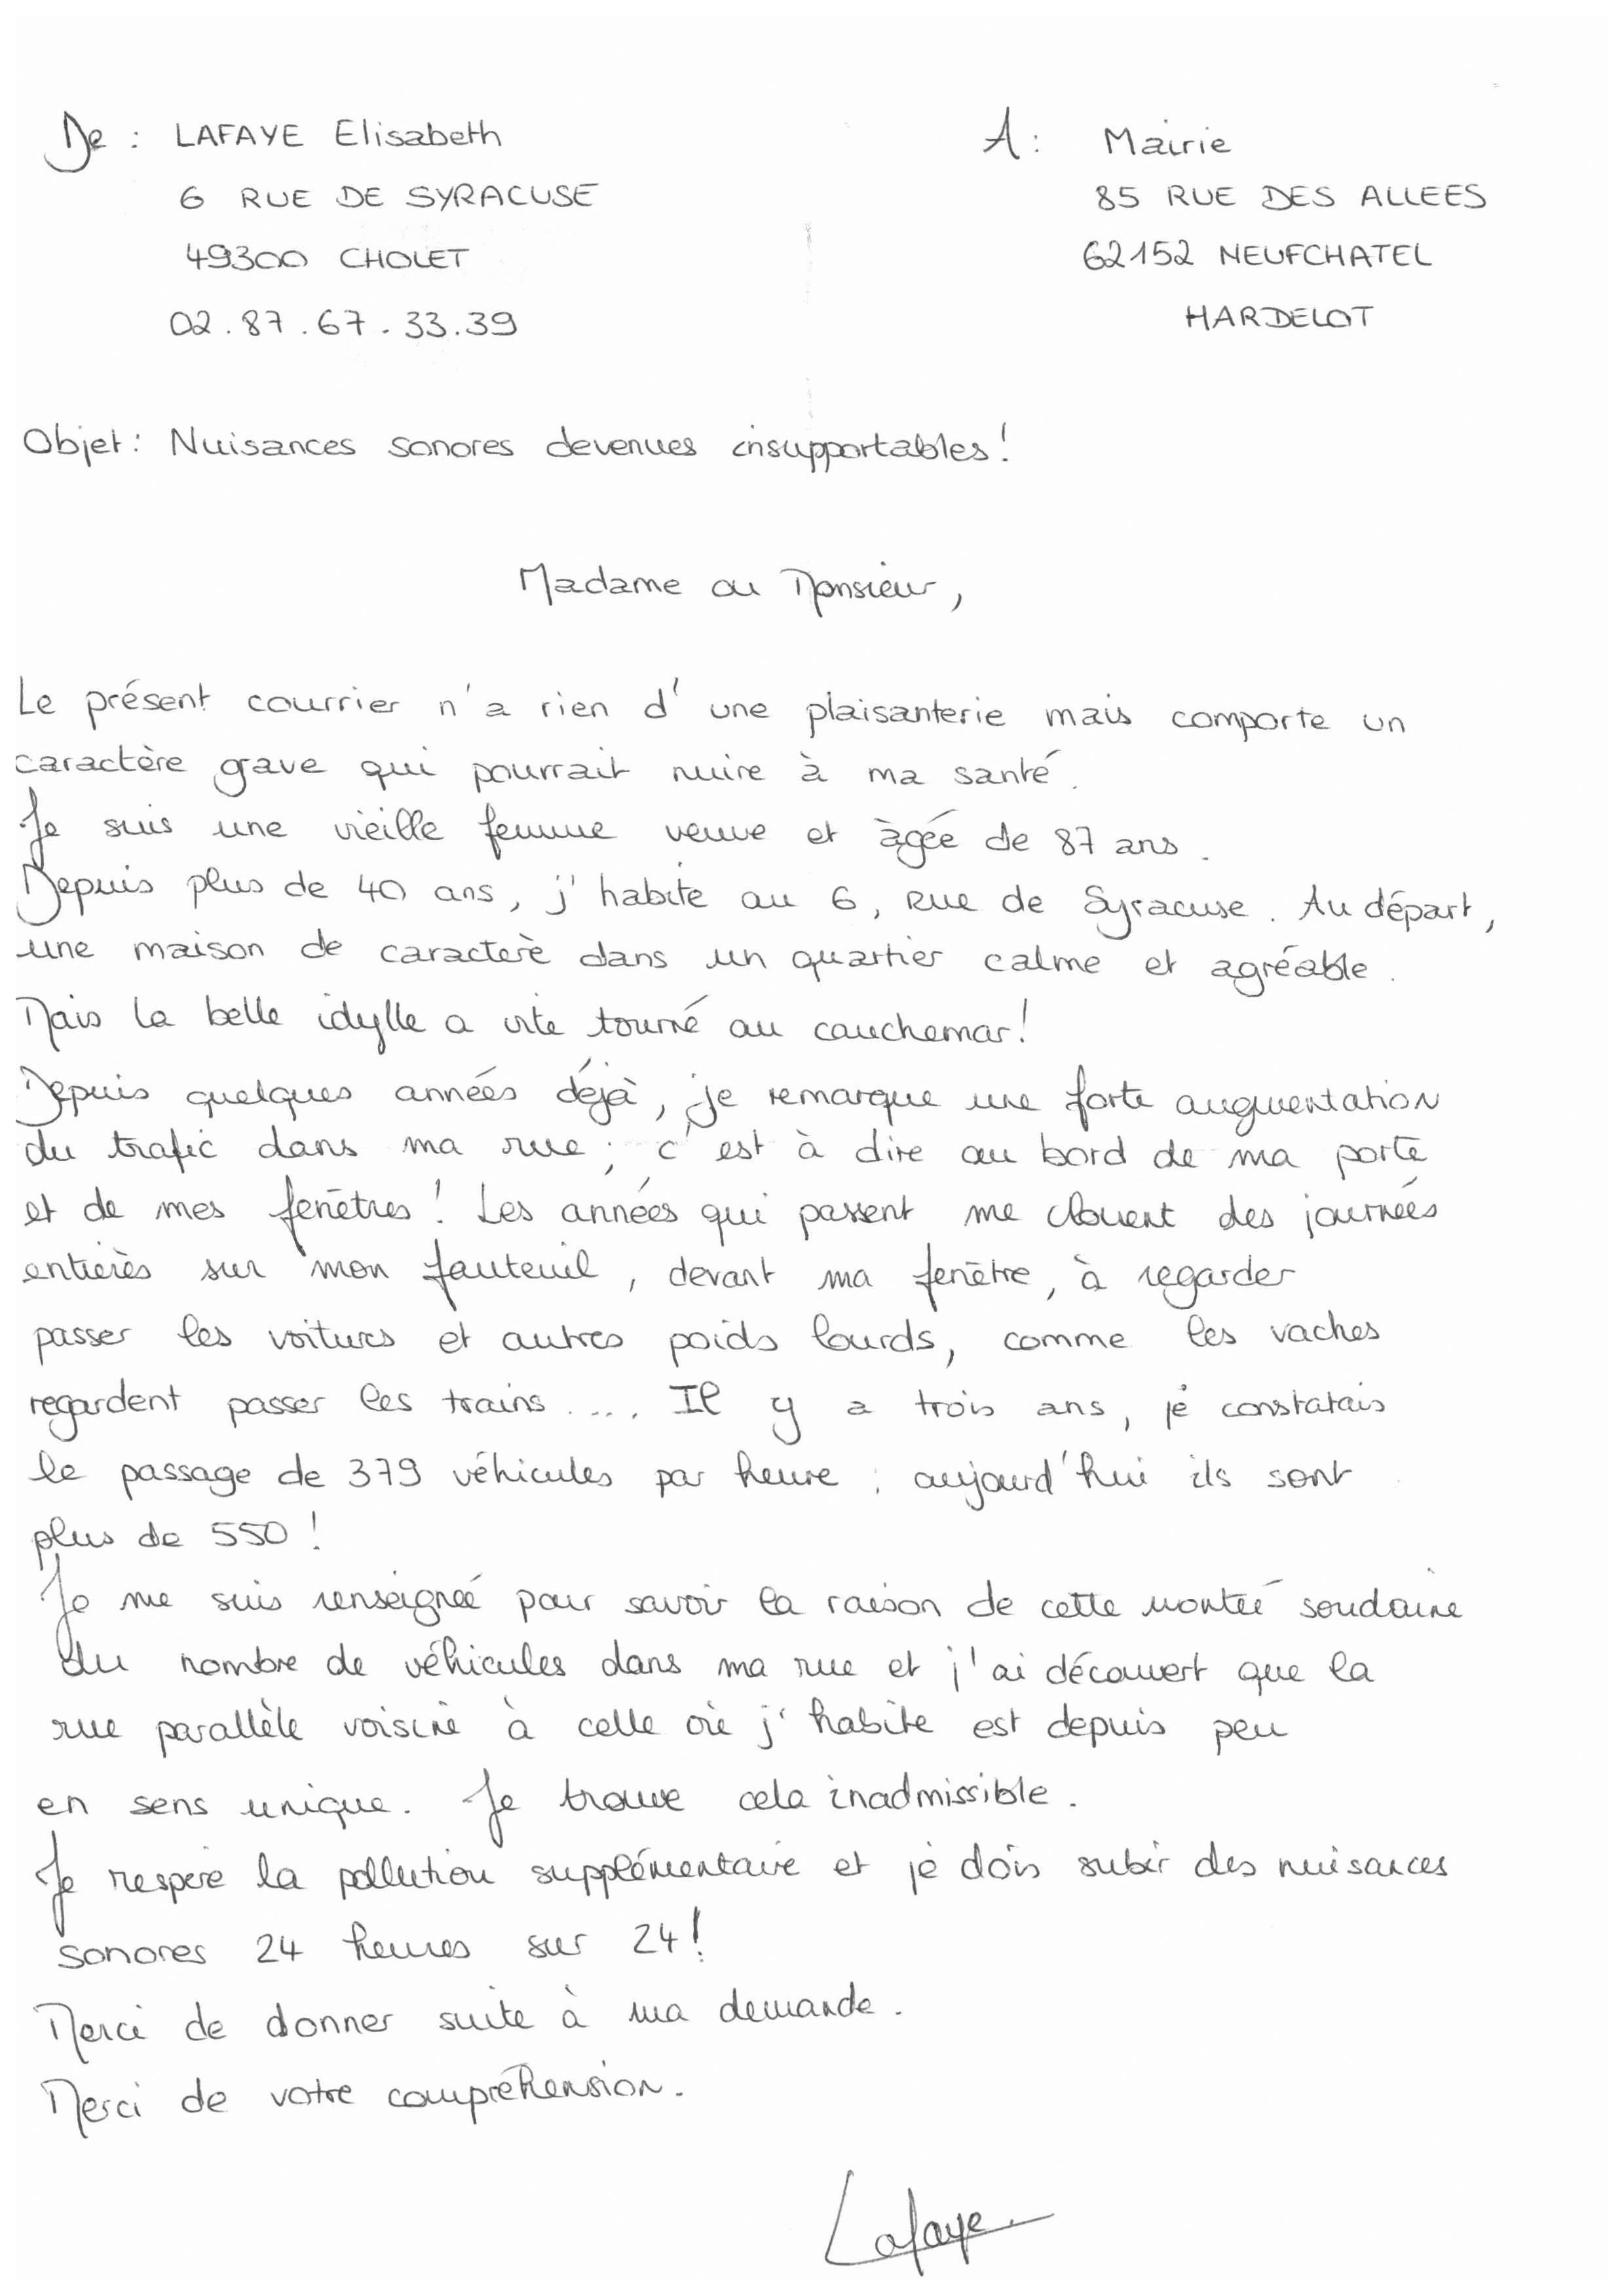 De : LAFAYE Elisabeth
6 RUE DE SYRACUSE
49300 CHOLET
02.87.67.33.39
A : Mairie
85 RUE DES ALLEES
62152 NEUFCHATEL
HARDELOT
Objet : Nuisances sonores devenues insupportables !
Madame ou Monsieur,
Le présent courrier n'a rien d'une plaisanterie mais comporte un
caractère grave qui pourrait nuire à ma santé.
Je suis une vieille femme veuve et âgée de 87 ans.
Depuis plus de 40 ans, j'habite au 6, Rue de Syracuse. Au départ,
une maison de caractère dans un quartier calme et agréable.
Mais la belle idylle a vite tourné au cauchemar !
Depuis quelques années déjà, je remarque une forte augmentation
du trafic dans ma rue ; c'est à dire au bord de ma porte
et de mes fenêtres ! Les années qui passent me clouent des journées
entières sur mon fauteuil, devant ma fenêtre, à regarder
passer les voitures et autres poids lourds, comme les vaches
regardent passer les trains .... Il y a trois ans, je constatais
le passage de 379 véhicules par heure ; aujourd'hui ils sont
plus de 550 !
Je me suis renseignée pour savoir la raison de cette montée soudaine
du nombre de véhicules dans ma rue et j'ai découvert que la
rue parallèle voisine à celle où j'habite est depuis peu
en sens unique. Je trouve cela inadmissible.
Je respere la pollution supplémentaire et je dois subir des nuisances
sonores 24 heures sur 24 !
Merci de donner suite à ma demande.
Merci de votre compréhension.
Lafaye